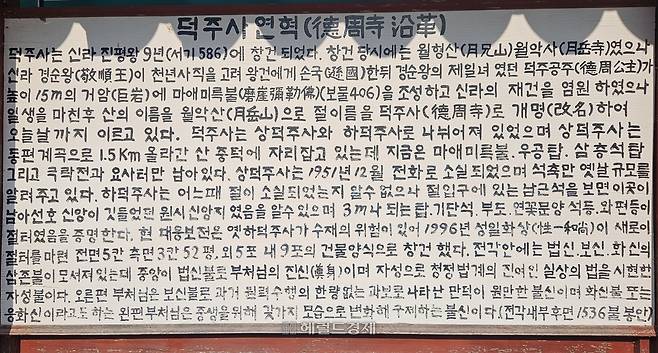 덕주사 연혁(德周寺 沿革)
덕주사는 신라 진평왕 9년(서기 586)에 창건 되었다. 창건 당시에는 월형산(月兄山)월악사(月岳寺)였으나
신라 경순왕(敬順王)이 천년사직을 고려 왕건에게 손국(遜國)한뒤 경순왕의 제일녀 였던 덕주공주(德周公主)가
높이 15m의 거암(巨岩)에 마애미륵불(磨崖彌勒佛)(보물406)을 조성하고 신라의 재건을 염원 하였으나
일생을 마친후 산의 이름을 월악산(月岳山)으로 절이름을 덕주사(德周寺)로 개명(改名)하여
오늘날까지 이르고 있다. 덕주사는 상덕주사와 하덕주사로 나뉘어져 있었으며 상덕주사는
동편계곡으로 1.5Km 올라간 산 중턱에 자리잡고 있는데 지금은 마애미륵불. 우공탑. 삼층석탑
그리고 극락전과 요사터만 남아있다. 상덕주사는 1951년12월 전화로 소실되었으며 석축만 옛날규모를
알려주고 있다. 하덕주사는 어느때 절이 소실되었는지 알수 없으나 절입구에 있는 남근석을 보면 이곳이
남아선호 신앙이 깃들었던 원시신앙지였음을 알수있으며 3m나 되는탑.기단석. 부도. 연꽃문양 석등. 와편등이
절터였음을 증명한다. 현 대웅보전은 옛하덕주사가 수재의 위험이있어 1996년 성일화상(性一和尙)이 새로이
절터를 마련 전면5칸 측면3칸 52평, 외5포 내9포의 건물양식으로 창건 했다. 전각안에는 법신.보신.화신의
삼존불이 모셔져있는데 중앙이 법신불로 부처님의 진신(眞身)이며 자성으로 청정법계의 진여인 실상의 법을 시현한
자성불이다. 오른편 부처님은 보신불로 과거 원력수행의 한량없는과보로 나타난 만덕이 원만한 불신이며 화신불 또는
응화신이라고도 하는 왼편부처님은 중생을위해 갖가지 모습으로 변화해 구제하는 불신이다(전각내부후면 1536불 봉안)
헤럴드경제